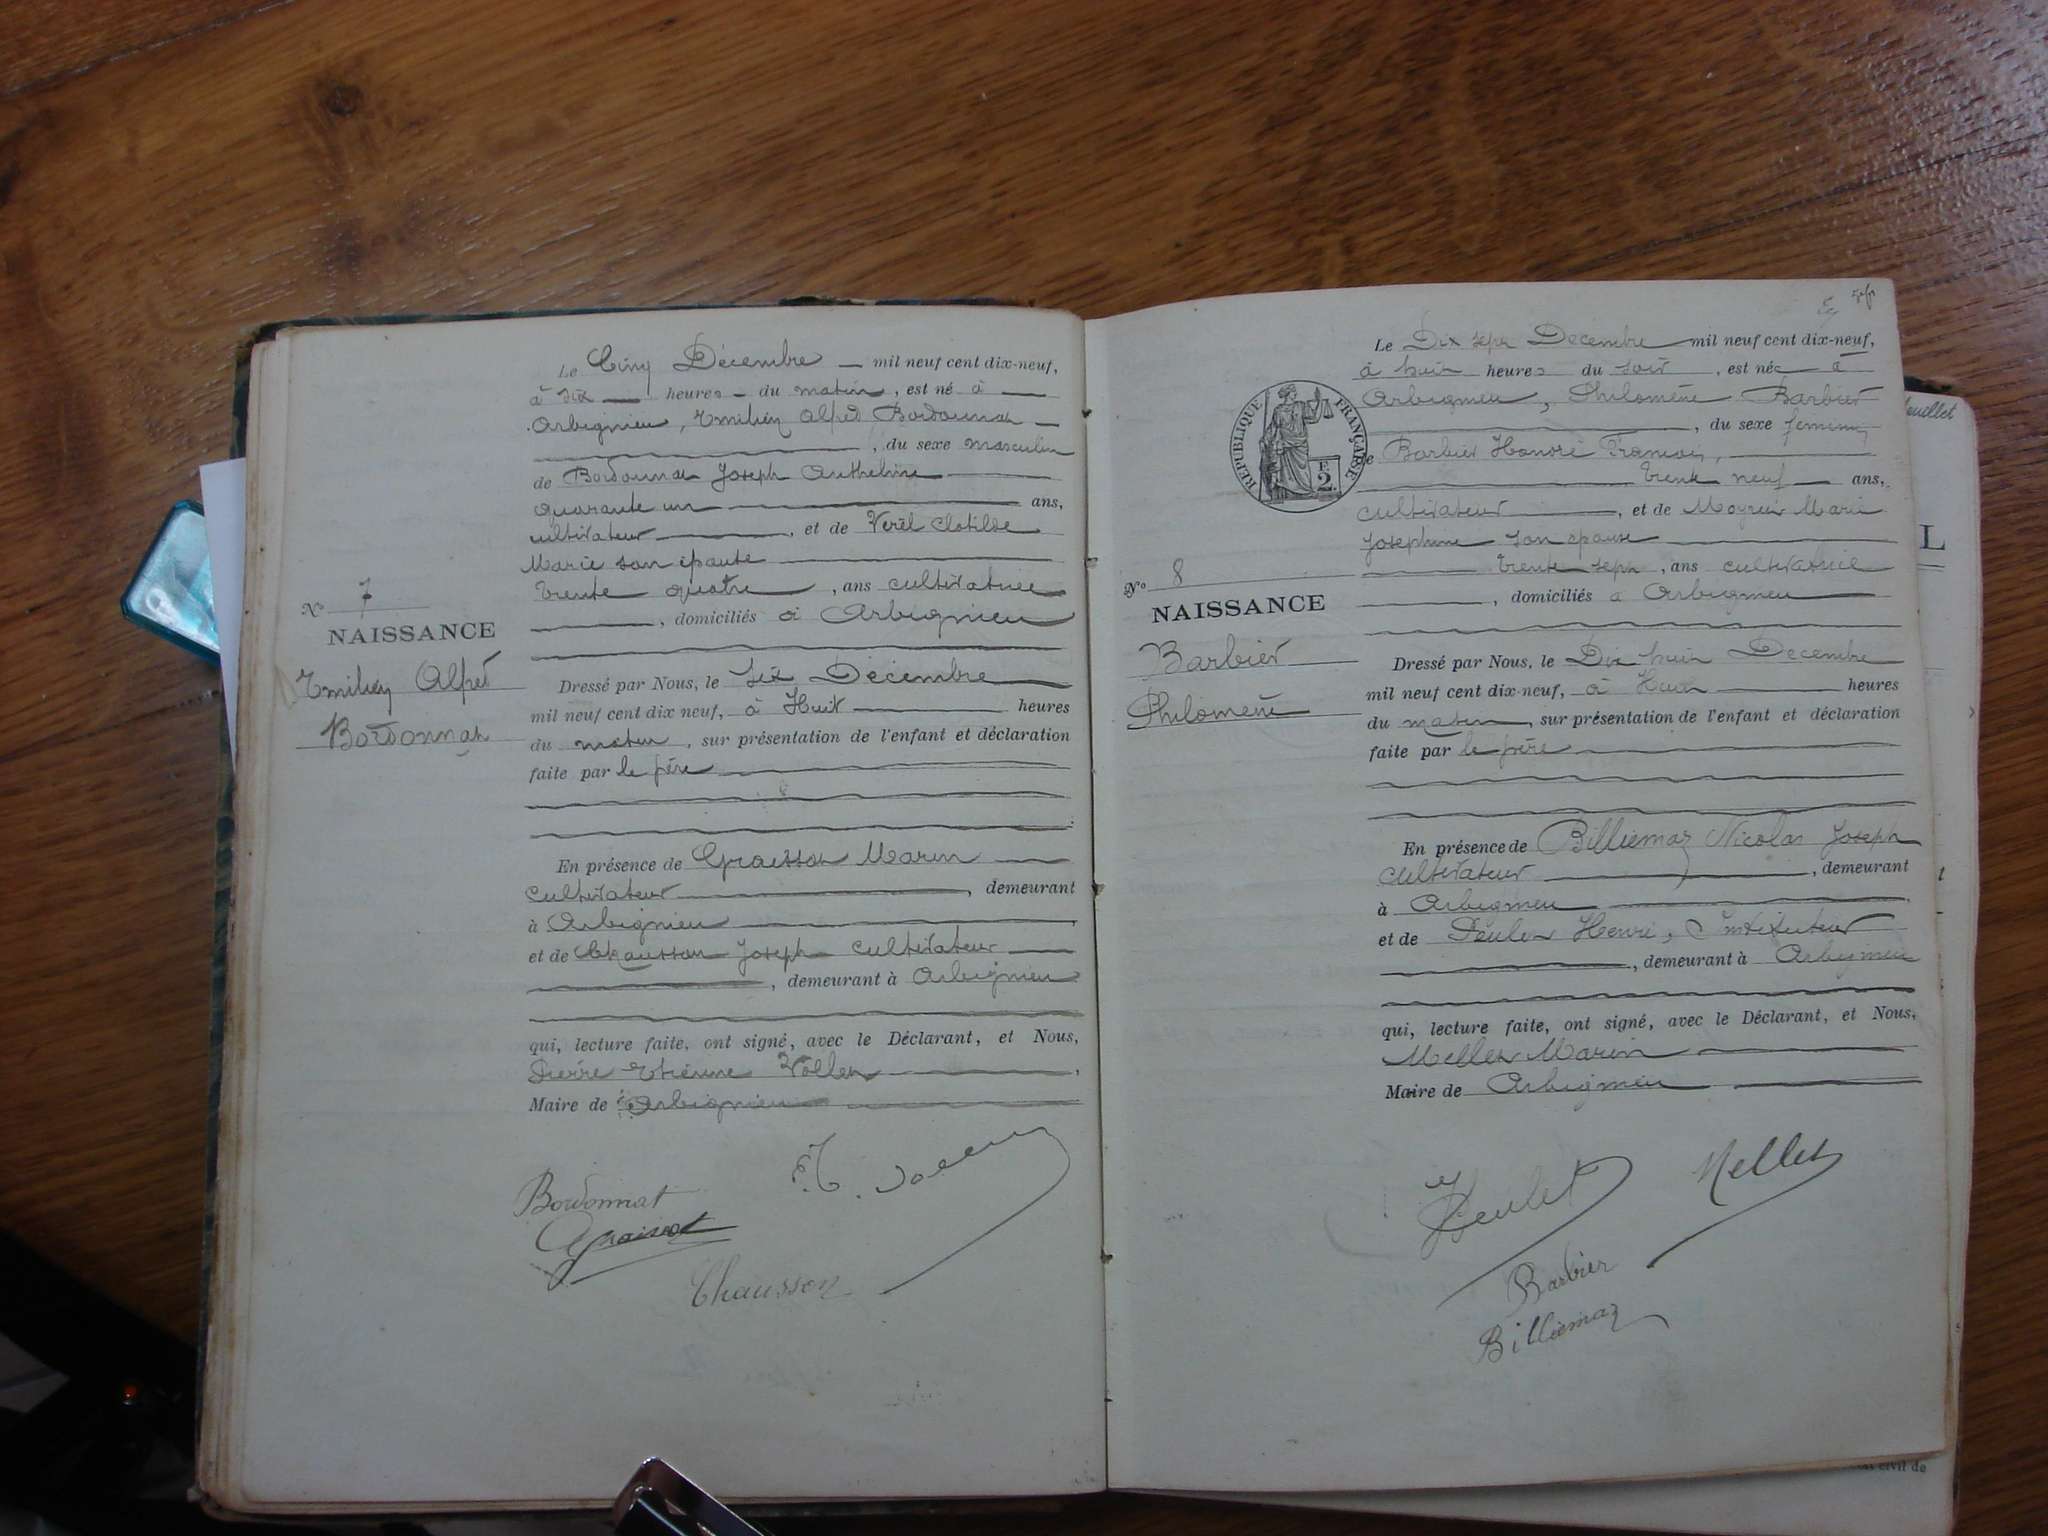 Le Cinq Décembre mil neuf cent dix-neuf,
à six heures du matin, est né à
Arbignieu, Emilien Alfred Bordonnat
, du sexe masculin
de Bordonnat Joseph Anthelme
quarante un ans,
cultivateur, et de Verêl Clotilde
Marie son épouse
trente quatre, ans cultivatrice
, domiciliés à Arbignieu
N° 7
NAISSANCE
Alfred
Bordonnat
Dressé par Nous, le six Décembre
mil neuf cent dix neuf, à Huit heures
du matin, sur présentation de l'enfant et déclaration
faite par le père
En présence de Graisson Marin
cultivateur, demeurant
à Arbignieu
et de Chausson Joseph cultivateur
, demeurant à Arbignieu
qui, lecture faite, ont signé, avec le Déclarant, et Nous,
Pierre Etienne Vollet
Maire de Arbignieu
Bordonnat
Chausson
Le Dix sept Décembre mil neuf cent dix-neuf,
à huit heures du soir, est née à
Arbignieu, Philomène Barbier
, du sexe feminin
de Barbier Honoré François,
trente neuf ans,
cultivateur, et de Marie
Josephine son épouse
trente sept, ans cultivatrice
, domiciliés à Arbignieu
REPUBLIQUE FRANÇAISE
F.
2.
N° 8
NAISSANCE
Barbier
Philomène
Dressé par Nous, le Dix huit Decembre
mil neuf cent dix-neuf, à Huit heures
du matin, sur présentation de l'enfant et déclaration
faite par le père
En présence de Billiemaz Nicolas Joseph
cultivateur, demeurant
à Arbignieu
et de Henri, Instituteur
, demeurant à Arbignieu
qui, lecture faite, ont signé, avec le Déclarant, et Nous,
Mellet Marin
Maire de Arbignieu
Mellet
Barbier
Billiemaz
feuillet
L
civil de